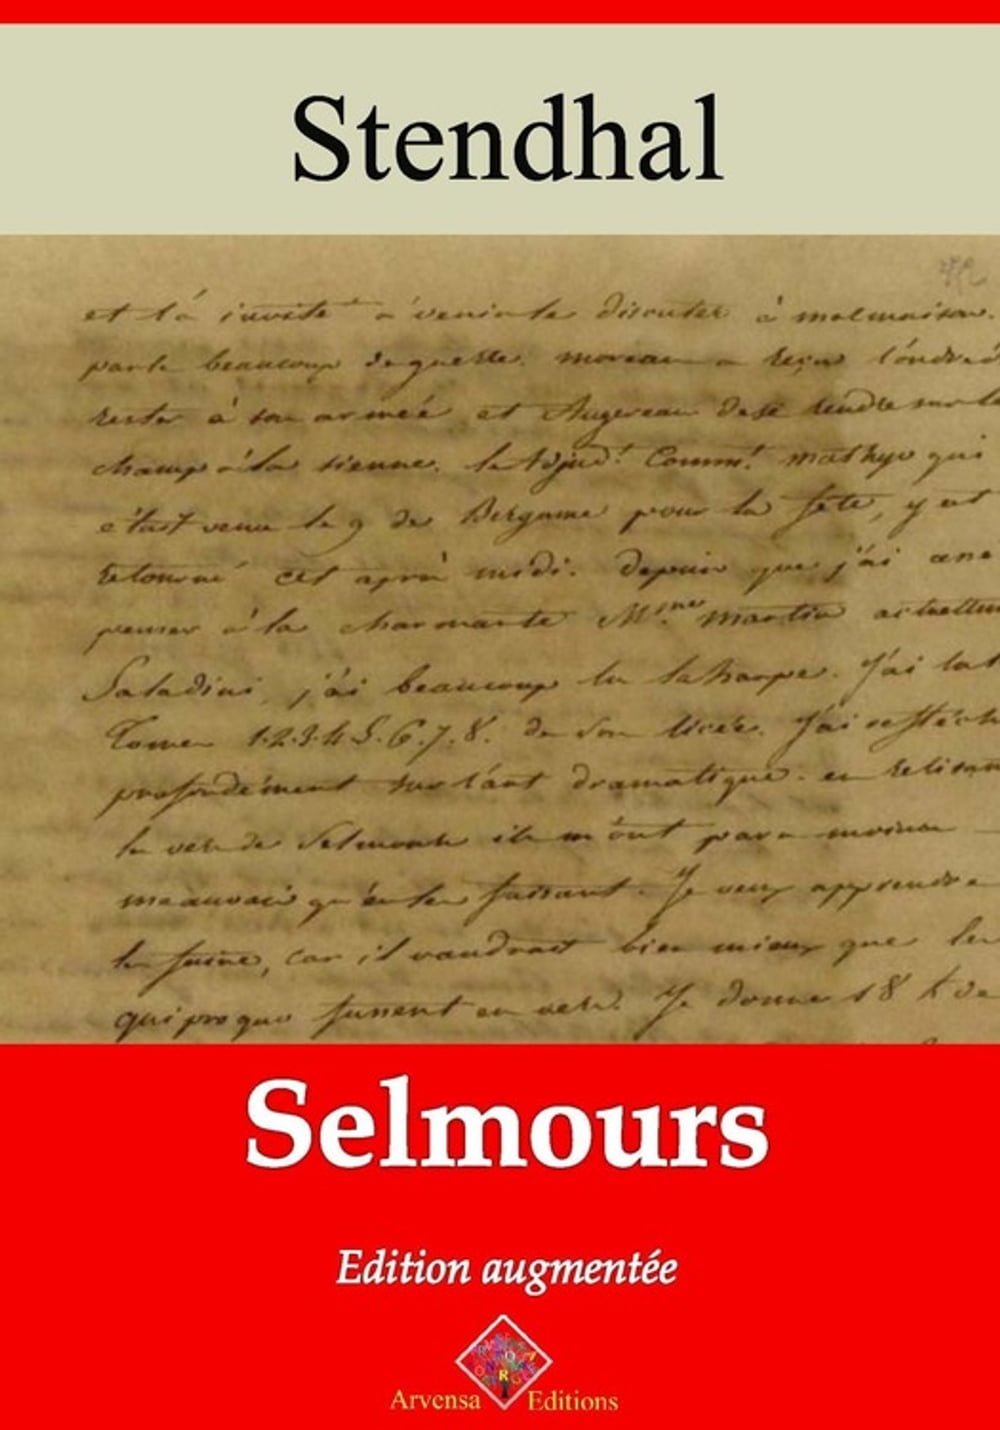 Stendhal
et l'a invité à venir le discuter à malmaison.
parle beaucoup de guerre. moreau a reçu l'ordre d
rester à son armée et Augereau de se rendre sur le
champ à la sienne. le Adjud! Comm! mathys qui
c'etait venu le 9 de Bergame pour la fête, y est
retourné cet après midi. depuis que j'ai
penser à la charmante Mme martin actuellem
Saladini, j'ai beaucoup lu laharpe. J'ai lu
Tomes 1.2.3.4.5.6.7.8. de son licée. J'ai réfléch
profondément sur l'art dramatique. en relisan
le vers de Selmours ils m'ont paru moins
meauvais qu'en les faisant. Je veux apprendre
les faire, car il vaudrait bien mieux que les
qui pro quo fussent en vers. Je donne 18 de
Selmours
Edition augmentée
Arvensa Editions